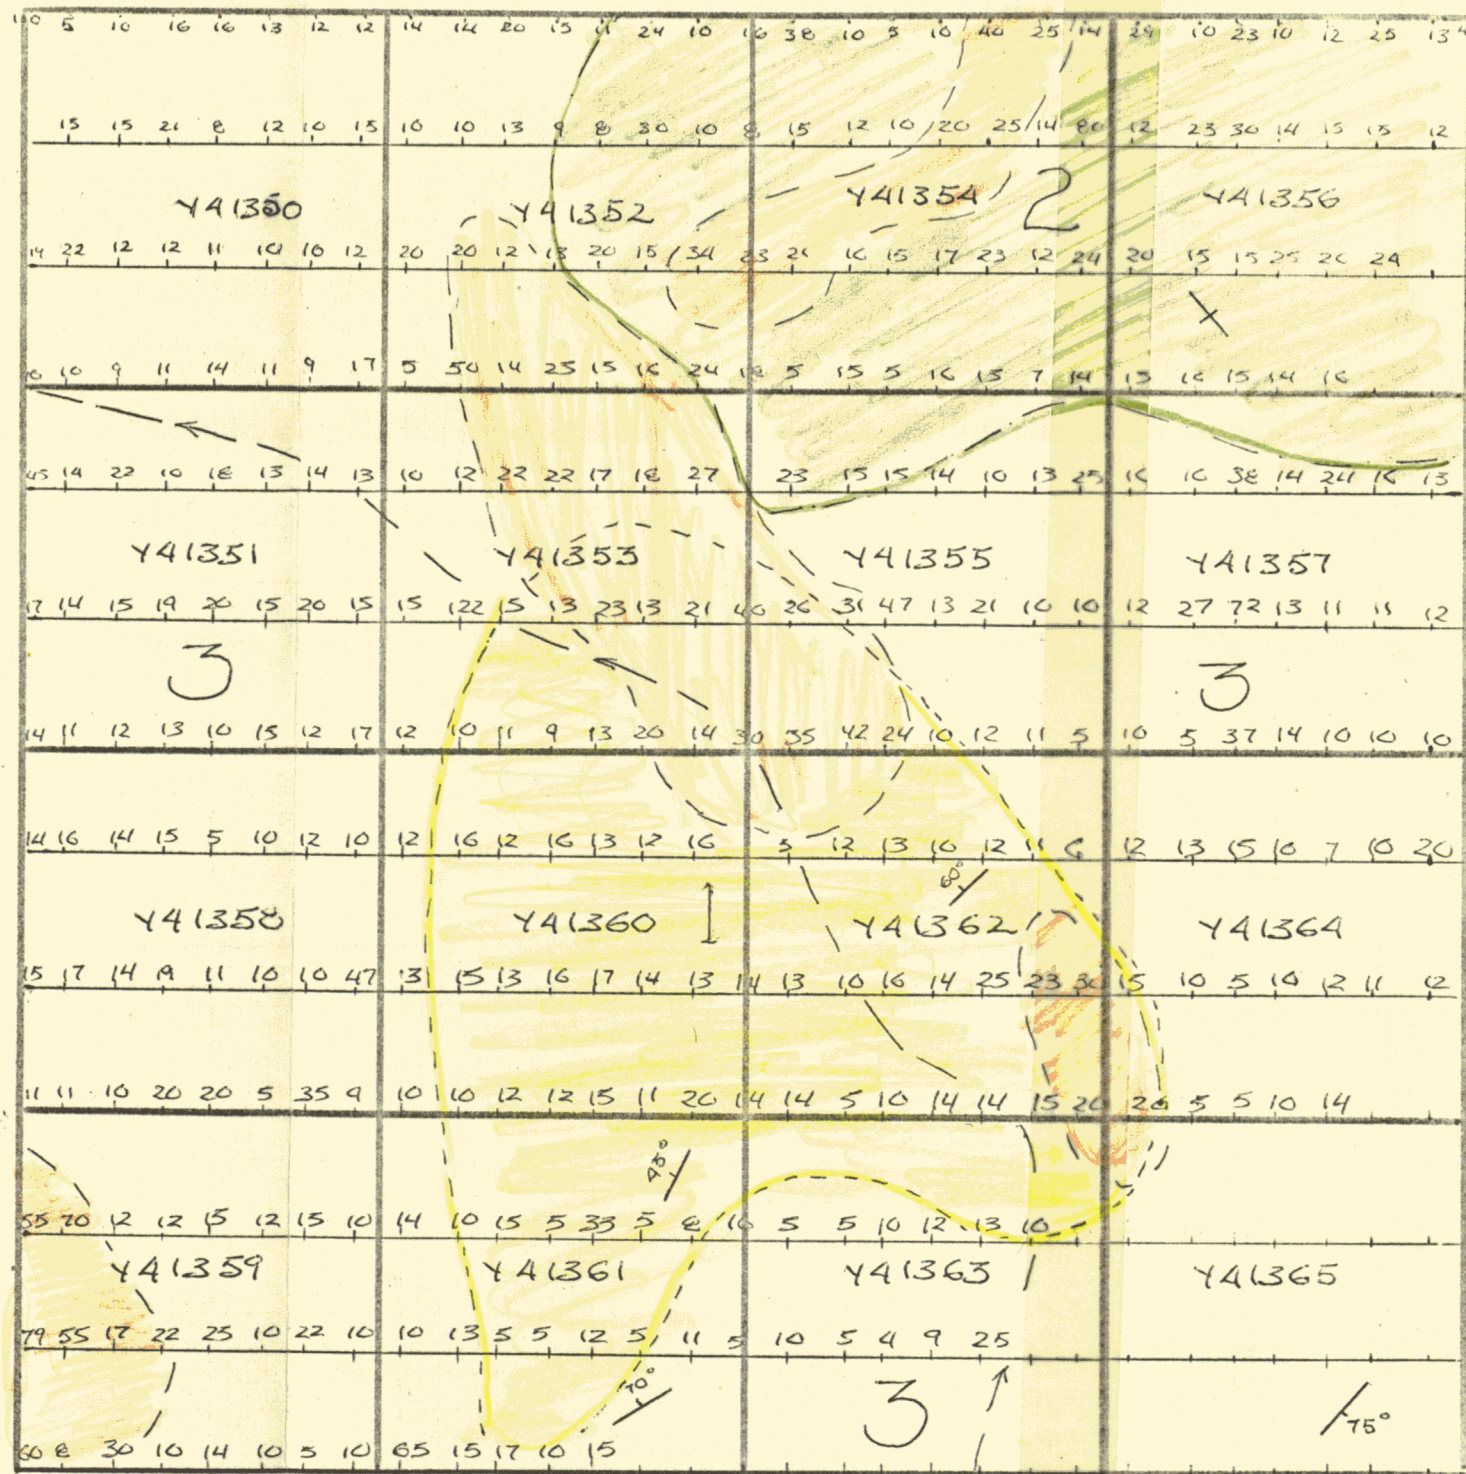 10 5 10 16 16 13 12 12 14 14 20 15 11 24 10 16 38 10 5 10 40 25 14 29 10 23 10 12 25 13
15 15 21 8 12 10 15 10 10 13 9 8 30 10 8 15 12 10 20 25 14 80 12 23 30 14 15 15 12
Y41350 Y41352 Y41354 2 Y41356
14 22 12 12 11 10 10 12 20 20 12 13 20 15 34 23 21 16 15 17 23 12 24 20 15 15 25 26 24
10 9 11 14 11 9 17 5 50 14 25 15 16 24 18 5 15 5 16 15 7 14 15 16 15 14 16
45 14 22 10 18 13 14 13 10 12 22 22 17 18 27 23 15 15 14 10 13 25 16 16 38 14 24 16 13
Y41351 Y41353 Y41355 Y41357
17 14 15 19 20 15 20 15 15 122 15 13 23 13 21 40 26 31 47 13 21 10 10 12 27 72 13 11 11 12
3 3
14 11 12 13 10 15 12 17 12 10 11 9 13 20 14 30 35 42 24 10 12 11 5 10 5 37 14 10 10 10
14 16 14 15 5 10 12 10 12 16 12 16 13 12 16 5 12 13 10 12 11 6 12 13 15 10 7 10 20
60°
Y41358 Y41360 Y41362 Y41364
15 17 14 19 11 10 10 47 13 15 13 16 17 14 13 14 13 10 16 14 25 23 30 15 10 5 10 12 11 12
11 11 10 20 20 5 35 9 10 10 12 12 15 11 20 14 14 5 10 14 14 15 20 20 5 5 10 14
45°
55 70 12 12 15 12 15 10 14 10 15 5 33 5 8 10 5 5 10 12 13 10
Y41359 Y41361 Y41363 Y41365
79 55 17 22 25 10 22 10 10 13 5 5 12 5 11 5 10 5 4 9 25
70° 3 75°
60 8 30 10 14 10 5 10 65 15 17 10 15